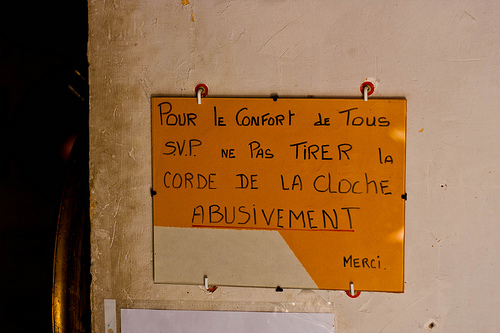 POUR lE CONFORT de TOUS
S.V.P. NE PAS TIRER lA
CORDE DE LA CLOCHE
ABUSiVEMENT
MERCi.